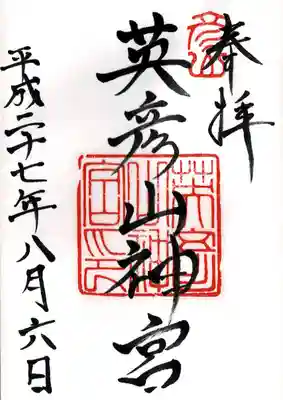 奉拝
英彦山神宮
平成二十七年八月六日